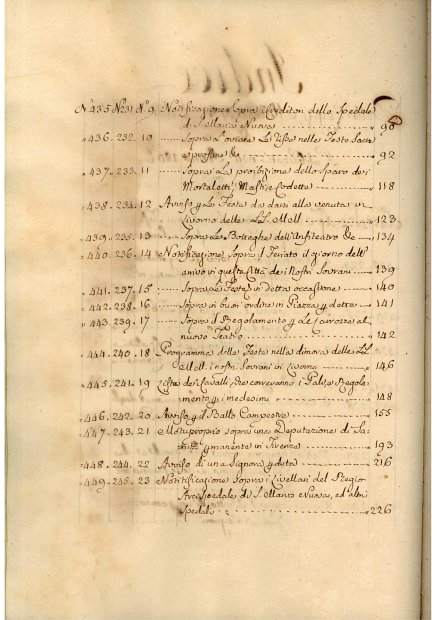 Nº435 Nº231 Nº9 Notificazione sopra i Creditori dello Spedale
di S. Maria Nuova 90
436. 232. 10 Sopra l'ovviare le Risse nelle Feste Sacre
e profane &c 92
437. 233. 11 Sopra la proibizione dello sparo dei
Mortaletti, Mastj e Codette 118
438. 234. 12 Avviso p le Feste da darsi alla venuta in
Livorno delle LL. MM. 123
439. 235. 13 Sopra le Botteghe dell'Anfiteatro &c 134
440. 236. 14 Notificazione Sopra il Feriato il giorno dell'
arrivo in questa Città dei Nostri Sovrani 139
441. 237. 15 Sopra le Feste in detta occasione 140
442. 238. 16 Sopra in buon ordine in Piazza p dette 141
443. 239. 17 Sopra il Regolamento p le Carrozze al
nuovo Teatro 142
444. 240. 18 Programma delle Feste nella dimora delle LL.
MM. i nostri Sovrani in Livorno 146
445. 241. 19 Lista dei Cavalli, che correvanno i Palj, e Regola-
mento p i medesimi 148
446. 242. 20 Avviso p il Ballo Campestre 155
447. 243. 21 Motuproprio sopra una Deputazione di Sa-
nità permanente in Firenze 193
448. 244. 22 Avviso di una Signora p dota 216
449. 245. 23 Notificazione Sopra i Livellari del Regio
Arcispedale di S. Maria Nuova, ed altri
Spedali 226